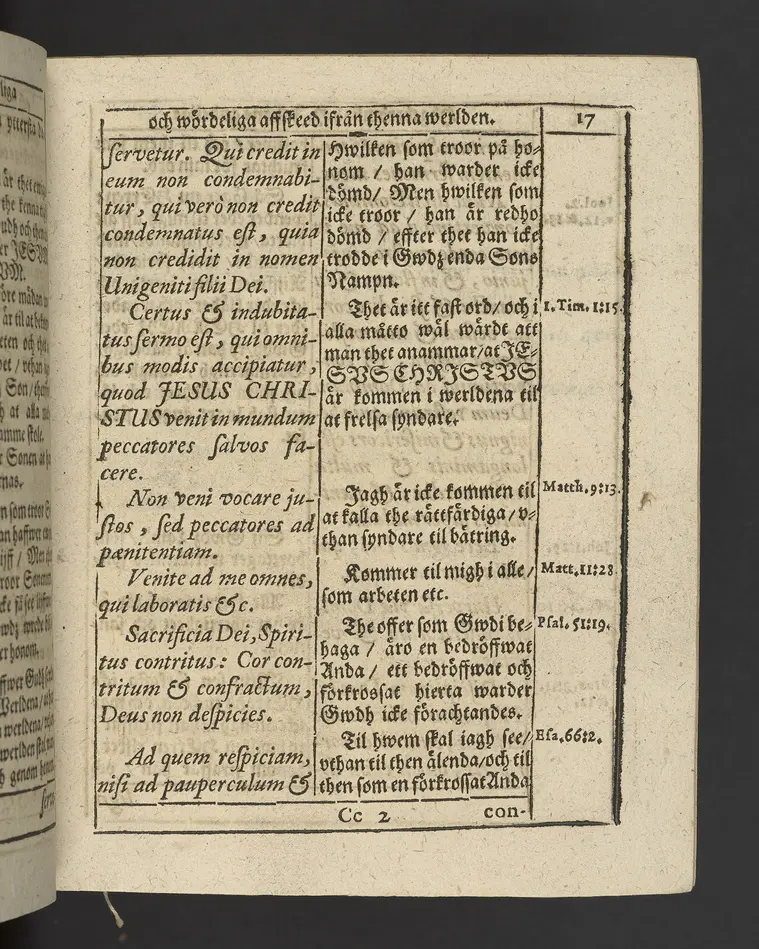 och wördeliga affskeed ifrån thenna werlden.
17
servetur. Qui credit in
eum non condemnabi-
tur, qui verò non credit
condemnatus est, quia
non credidit in nomen
Unigeniti filii Dei.
Certus & indubita-
tus sermo est, qui omni-
bus modis accipiatur,
quod JESUS CHRI-
STUS venit in mundum
peccatores salvos fa-
cere.
Non veni vocare ju-
stos, sed peccatores ad
pœnitentiam.
Venite ad me omnes,
qui laboratis &c.
Sacrificia Dei, Spiri-
tus contritus: Cor con-
tritum & confractum,
Deus non despicies.
Ad quem respiciam,
nisi ad pauperculum &
Hwilken som troor på ho-
nom / han warder icke
dömd / Men hwilken som
icke troor / han är redho
dömd / effter thet han icke
trodde i Gwdz enda Sons
Nampn.
Thet är itt fast ord / och i
alla mätto wäl wärdt att
man thet anammar / at JE-
SVS CHRISTVS
är kommen i werldena til
at frelsa syndare.
Jagh är icke kommen til
at kalla the rättfärdiga / v-
than syndare til bätring.
Kommer til migh i alle /
som arbeten etc.
The offer som Gwdi be-
haga / äro en bedröffwat
Anda / ett bedröffwat och
förkrossat hierta warder
Gwdh icke förachtandes.
Til hwem skal iagh see /
vthan til then älenda / och til
then som en förkrossat Anda
1. Tim. 1:15.
Matth. 9:13.
Matt. 11:28.
Psal. 51:19.
Esa. 66:2.
Cc 2
con-